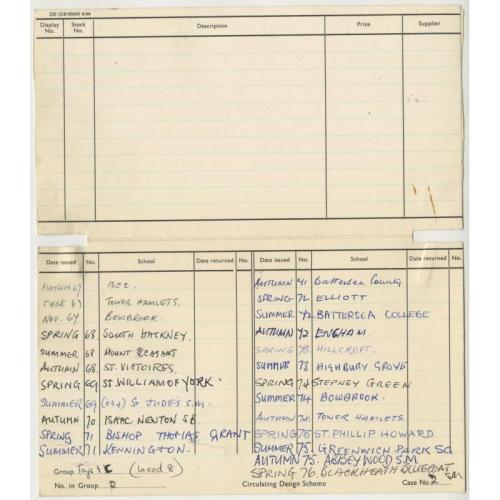 Display No. Stock No. Description Price Supplier
Date issued No. School Date returned No.
MARCH 67 BEC.
JUNE 67 TOWER HAMLETS.
NOV. 67 BOWBROOK.
SPRING 68 SOUTH HACKNEY.
SUMMER 68 MOUNT PLEASANT
AUTUMN 68. ST. VICTOIRES.
SPRING 69 ST WILLIAM OF YORK.
SUMMER 69 ST JUDE'S S.M.
AUTUMN 70 ISAAC NEWTON SB
SPRING 71 BISHOP THOMAS GRANT
SUMMER 71 KENNINGTON.
Group Toys (Wood 8)
No. in Group 2
Date issued No. School Date returned No.
AUTUMN 71 Battersea County
SPRING 72 ELLIOTT
SUMMER 72 BATTERSEA COLLEGE
AUTUMN 72 ENGHAM.
SPRING 73 HILLCROFT.
SUMMER 73 HIGHBURY GROVE
SPRING 74 STEPNEY GREEN
SUMMER 74 BOWBROOK.
AUTUMN 74 TOWER HAMLETS.
SPRING 75 ST. PHILLIP HOWARD.
SUMMER 75. GREENWICH PARK SC
AUTUMN 75. ABBEY WOOD S.M
SPRING 76. BLACKHEATH BLUECOAT SM
Circulating Design Scheme Case No. 2